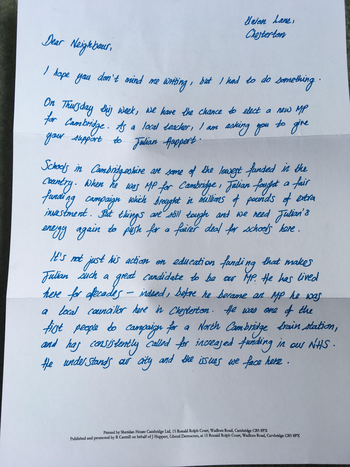 Lane,
Chesterton
Dear Neighbour,
I hope you don't mind me writing, but I had to do something.
On Thursday this week, we have the chance to elect a new MP
for Cambridge. As a local teacher, I am asking you to give
your support to Julian Huppert.
Schools in Cambridgeshire are some of the lowest funded in the
country. When he was MP for Cambridge, Julian fought a fair
funding campaign which brought in millions of pounds of extra
investment. But things are still tough and we need Julian's
energy again to push for a fairer deal for schools here.
It's not just his action on education funding that makes
Julian such a great candidate to be our MP. He has lived
here for decades — indeed, before he became an MP he was
a local councillor here in Chesterton. He was one of the
first people to campaign for a North Cambridge train station,
and has consistently called for increased funding in our NHS.
He understands our city and the issues we face here.
Printed by Sheridan House Cambridge Ltd, 15 Ronald Rolph Court, Wadloes Road, Cambridge CB5 8PX
Published and promoted by B Cantill on behalf of J Huppert, Liberal Democrats, at 15 Ronald Rolph Court, Wadloes Road, Cambridge CB5 8PX